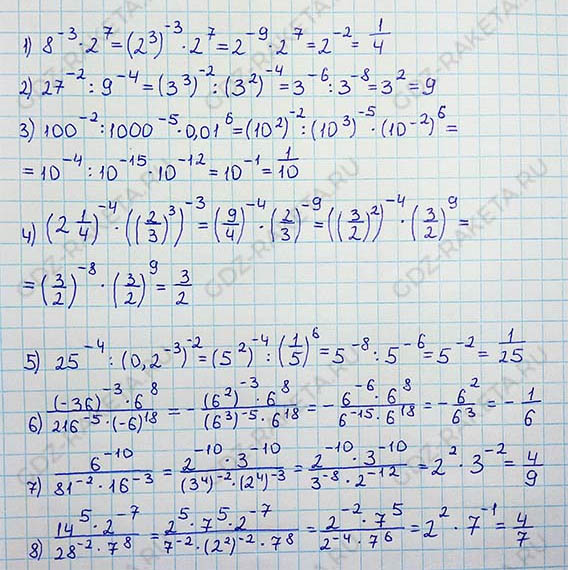 1) 8^{-3} · 2^7 = (2^3)^{-3} · 2^7 = 2^{-9} · 2^7 = 2^{-2} = 1/4
2) 27^{-2} : 9^{-4} = (3^3)^{-2} : (3^2)^{-4} = 3^{-6} : 3^{-8} = 3^2 = 9
3) 100^{-2} : 1000^{-5} · 0,01^6 = (10^2)^{-2} : (10^3)^{-5} · (10^{-2})^6 =
= 10^{-4} : 10^{-15} · 10^{-12} = 10^{-1} = 1/10
4) (2 1/4)^{-4} · ((2/3)^3)^{-3} = (9/4)^{-4} · (2/3)^{-9} = ((3/2)^2)^{-4} · (3/2)^9 =
= (3/2)^{-8} · (3/2)^9 = 3/2
5) 25^{-4} : (0,2^{-3})^{-2} = (5^2)^{-4} : (1/5)^6 = 5^{-8} : 5^{-6} = 5^{-2} = 1/25
6) (-36)^{-3} · 6^8 / 216^{-5} · (-6)^{18} = - (6^2)^{-3} · 6^8 / (6^3)^{-5} · 6^{18} = - 6^{-6} · 6^8 / 6^{-15} · 6^{18} = - 6^2 / 6^3 = - 1/6
7) 6^{-10} / 81^{-2} · 16^{-3} = 2^{-10} · 3^{-10} / (3^4)^{-2} · (2^4)^{-3} = 2^{-10} · 3^{-10} / 3^{-8} · 2^{-12} = 2^2 · 3^{-2} = 4/9
8) 14^5 · 2^{-7} / 28^{-2} · 7^8 = 2^5 · 7^5 · 2^{-7} / 7^{-2} · (2^2)^{-2} · 7^8 = 2^{-2} · 7^5 / 2^{-4} · 7^6 = 2^2 · 7^{-1} = 4/7
GDZ-RAKETA.RU